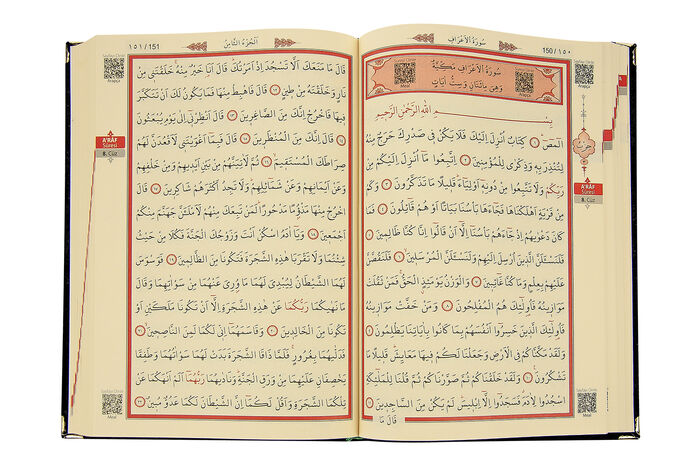 سُورَةُ الْأَعْرَافِ
150 / ١٥٠
Sayfayı Dinle
Arapça
Sureyi Dinle
Meal
سُورَةُ الْأَعْرَافِ مَكِّيَّةٌ
وَهِيَ مِائَتَانِ وَسِتُّ آيَاتٍ
Arapça
بِسْمِ اللهِ الرَّحْمٰنِ الرَّحِيمِ
الٓمٓصٓ ﴿١﴾ كِتَابٌ اُنْزِلَ اِلَيْكَ فَلَا يَكُنْ فِي صَدْرِكَ حَرَجٌ مِنْهُ
لِتُنْذِرَ بِهِ وَذِكْرٰى لِلْمُؤْمِنِينَ ﴿٢﴾ اِتَّبِعُوا مَٓا اُنْزِلَ اِلَيْكُمْ مِنْ
رَبِّكُمْ وَلَا تَتَّبِعُوا مِنْ دُونِهِٓ اَوْلِيَٓاءَ قَلِيلًا مَا تَذَكَّرُونَ ﴿٣﴾ وَكَمْ
مِنْ قَرْيَةٍ اَهْلَكْنَاهَا فَجَٓاءَهَا بَأْسُنَا بَيَاتًا اَوْ هُمْ قَٓائِلُونَ ﴿٤﴾ فَمَا
كَانَ دَعْوٰيهُمْ اِذْ جَٓاءَهُمْ بَأْسُنَٓا اِلَّٓا اَنْ قَالُٓوا اِنَّا كُنَّا ظَالِمِينَ ﴿٥﴾
فَلَنَسْـَٔلَنَّ الَّذِينَ اُرْسِلَ اِلَيْهِمْ وَلَنَسْـَٔلَنَّ الْمُرْسَلِينَ ﴿٦﴾ فَلَنَقُصَّنَّ
عَلَيْهِمْ بِعِلْمٍ وَمَا كُنَّا غَٓائِبِينَ ﴿٧﴾ وَالْوَزْنُ يَوْمَئِذٍ الْحَقُّ فَمَنْ ثَقُلَتْ
مَوَازِينُهُ فَاُولٰٓئِكَ هُمُ الْمُفْلِحُونَ ﴿٨﴾ وَمَنْ خَفَّتْ مَوَازِينُهُ
فَاُولٰٓئِكَ الَّذِينَ خَسِرُٓوا اَنْفُسَهُمْ بِمَا كَانُوا بِاٰيَاتِنَا يَظْلِمُونَ ﴿٩﴾
وَلَقَدْ مَكَّنَّاكُمْ فِي الْاَرْضِ وَجَعَلْنَا لَكُمْ فِيهَا مَعَايِشَ قَلِيلًا مَا
تَشْكُرُونَ ﴿١٠﴾ وَلَقَدْ خَلَقْنَاكُمْ ثُمَّ صَوَّرْنَاكُمْ ثُمَّ قُلْنَا لِلْمَلٰٓئِكَةِ
اسْجُدُوا لِاٰدَمَ فَسَجَدُٓوا اِلَّٓا اِبْلِيسَ لَمْ يَكُنْ مِنَ السَّاجِدِينَ ﴿١١﴾
قَالَ مَا
حِزْب
A'RÂF
Sûresi
8. Cüz
Sayfayı Dinle
Meal
١٥١ / 151
اَلْجُزْءُ الثَّامِنُ
Sayfayı Dinle
Arapça
قَالَ مَا مَنَعَكَ اَلَّا تَسْجُدَ اِذْ اَمَرْتُكَ قَالَ اَنَا۬ خَيْرٌ مِنْهُ خَلَقْتَنِي مِنْ
نَارٍ وَخَلَقْتَهُ مِنْ طِينٍ ﴿١٢﴾ قَالَ فَاهْبِطْ مِنْهَا فَمَا يَكُونُ لَكَ اَنْ تَتَكَبَّرَ
فِيهَا فَاخْرُجْ اِنَّكَ مِنَ الصَّاغِرِينَ ﴿١٣﴾ قَالَ اَنْظِرْنِٓي اِلٰى يَوْمِ يُبْعَثُونَ
﴿١٤﴾ قَالَ اِنَّكَ مِنَ الْمُنْظَرِينَ ﴿١٥﴾ قَالَ فَبِمَٓا اَغْوَيْتَنِي لَاَقْعُدَنَّ لَهُمْ
صِرَاطَكَ الْمُسْتَقِيمَ ﴿١٦﴾ ثُمَّ لَاٰتِيَنَّهُمْ مِنْ بَيْنِ اَيْدِيهِمْ وَمِنْ خَلْفِهِمْ
وَعَنْ اَيْمَانِهِمْ وَعَنْ شَمَٓائِلِهِمْ وَلَا تَجِدُ اَكْثَرَهُمْ شَاكِرِينَ ﴿١٧﴾ قَالَ
اخْرُجْ مِنْهَا مَذْؤُ۫مًا مَدْحُورًا لَمَنْ تَبِعَكَ مِنْهُمْ لَاَمْلَـَٔنَّ جَهَنَّمَ مِنْكُمْ
اَجْمَعِينَ ﴿١٨﴾ وَيَٓا اٰدَمُ اسْكُنْ اَنْتَ وَزَوْجُكَ الْجَنَّةَ فَكُلَا مِنْ حَيْثُ
شِئْتُمَا وَلَا تَقْرَبَا هٰذِهِ الشَّجَرَةَ فَتَكُونَا مِنَ الظَّالِمِينَ ﴿١٩﴾ فَوَسْوَسَ
لَهُمَا الشَّيْطَانُ لِيُبْدِيَ لَهُمَا مَا وُ۫رِيَ عَنْهُمَا مِنْ سَوْاٰتِهِمَا وَقَالَ
مَا نَهٰيكُمَا رَبُّكُمَا عَنْ هٰذِهِ الشَّجَرَةِ اِلَّٓا اَنْ تَكُونَا مَلَكَيْنِ اَوْ
تَكُونَا مِنَ الْخَالِدِينَ ﴿٢٠﴾ وَقَاسَمَهُمَٓا اِنِّي لَكُمَا لَمِنَ النَّاصِحِينَ ﴿٢١﴾
فَدَلّٰيهُمَا بِغُرُورٍ فَلَمَّا ذَاقَا الشَّجَرَةَ بَدَتْ لَهُمَا سَوْاٰتُهُمَا وَطَفِقَا
يَخْصِفَانِ عَلَيْهِمَا مِنْ وَرَقِ الْجَنَّةِ وَنَادٰيهُمَا رَبُّهُمَٓا اَلَمْ اَنْهَكُمَا عَنْ
تِلْكُمَا الشَّجَرَةِ وَاَقُلْ لَكُمَٓا اِنَّ الشَّيْطَانَ لَكُمَا عَدُوٌّ مُبِينٌ ﴿٢٢﴾
A'RÂF
Sûresi
8. Cüz
Sayfayı Dinle
Meal